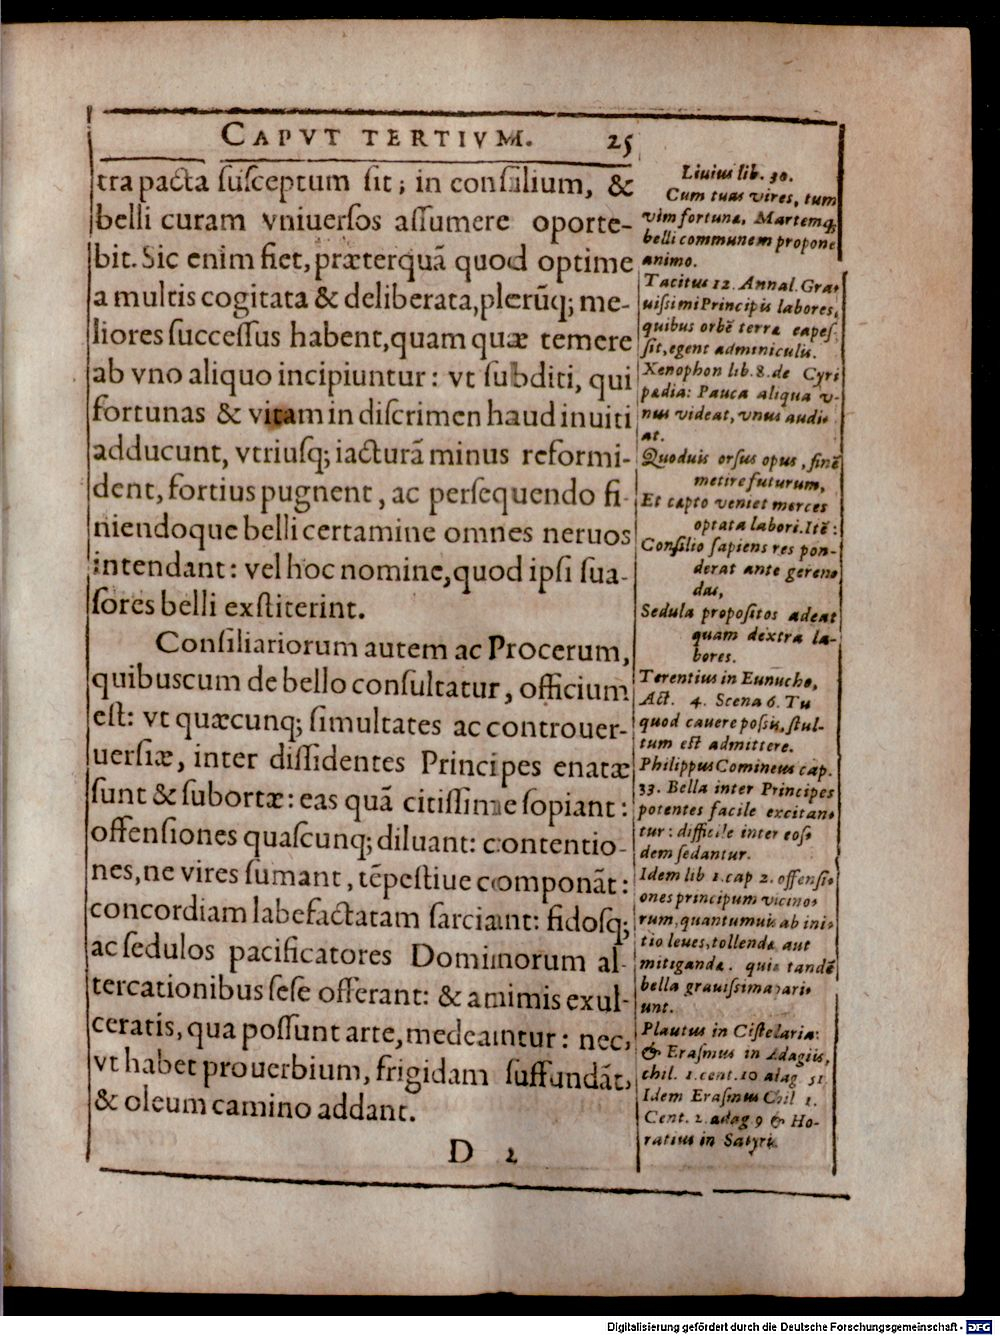 CAPVT TERTIVM. 25
tra pacta ſuſceptum ſit; in conſilium, &
belli curam vniuerſos aſſumere oporte-
bit. Sic enim fiet, præterquã quod optime
a multis cogitata & deliberata, plerũq; me-
liores ſucceſſus habent, quam quæ temere
ab vno aliquo incipiuntur: vt ſubditi, qui
fortunas & vitam in diſcrimen haud inuiti
adducunt, vtriuſq; iacturã minus reformi-
dent, fortius pugnent, ac perſequendo fi-
niendoque belli certamine omnes neruos
intendant: vel hoc nomine, quod ipſi ſua-
ſores belli exſtiterint.
Conſiliariorum autem ac Procerum,
quibuscum de bello conſultatur, officium
eſt: vt quæcunq; ſimultates ac controuer-
uerſiæ, inter diſſidentes Principes enatæ
ſunt & ſubortæ: eas quã citiſſime ſopiant:
offenſiones quaſcunq; diluant: contentio-
nes, ne vires ſumant, tẽpeſtiue componãt:
concordiam labefactatam ſarciant: fidoſq;
ac ſedulos pacificatores Dominorum al-
tercationibus ſeſe offerant: & animis exul-
ceratis, qua poſſunt arte, medeantur: nec,
vt habet prouerbium, frigidam ſuffundãt,
& oleum camino addant.
D 2
Liuius lib. 30.
Cum tuas vires, tum
vim fortunæ, Martemq;
belli communem propone
animo.
Tacitus 12. Annal. Gra-
uiſsimi Principis labores,
quibus orbẽ terræ capeſ-
ſit, egent adminiculis.
Xenophon lib. 8. de Cyri
pædia: Pauca aliqua v-
nus videat, vnus audi-
at.
Quoduis orſus opus, finẽ
metire futurum,
Et capto veniet merces
optata labori. Itẽ:
Conſilio ſapiens res pon-
derat ante geren-
das,
Sedula propoſitos adeat
quam dextra la-
bores.
Terentius in Eunucho,
Act. 4. Scena 6. Tu
quod cauere poſsis, ſtul-
tum eſt admittere.
Philippus Comineus cap.
33. Bella inter Principes
potentes facile excitan-
tur: difficile inter eoſ-
dem ſedantur.
Idem lib 1. cap 2. offenſi-
ones principum vicino-
rum, quantumuis ab ini-
tio leues, tollendæ aut
mitigandæ. quia tandẽ
bella grauiſsima pari-
unt.
Plautus in Ciſtelaria:
& Eraſmus in Adagiis,
chil. 1. cent. 10 adag 51
Idem Eraſmus Chil 1.
Cent. 2. adag 9 & Ho-
ratius in Satyris
Digitalisierung gefördert durch die Deutsche Forschungsgemeinschaft - DFG